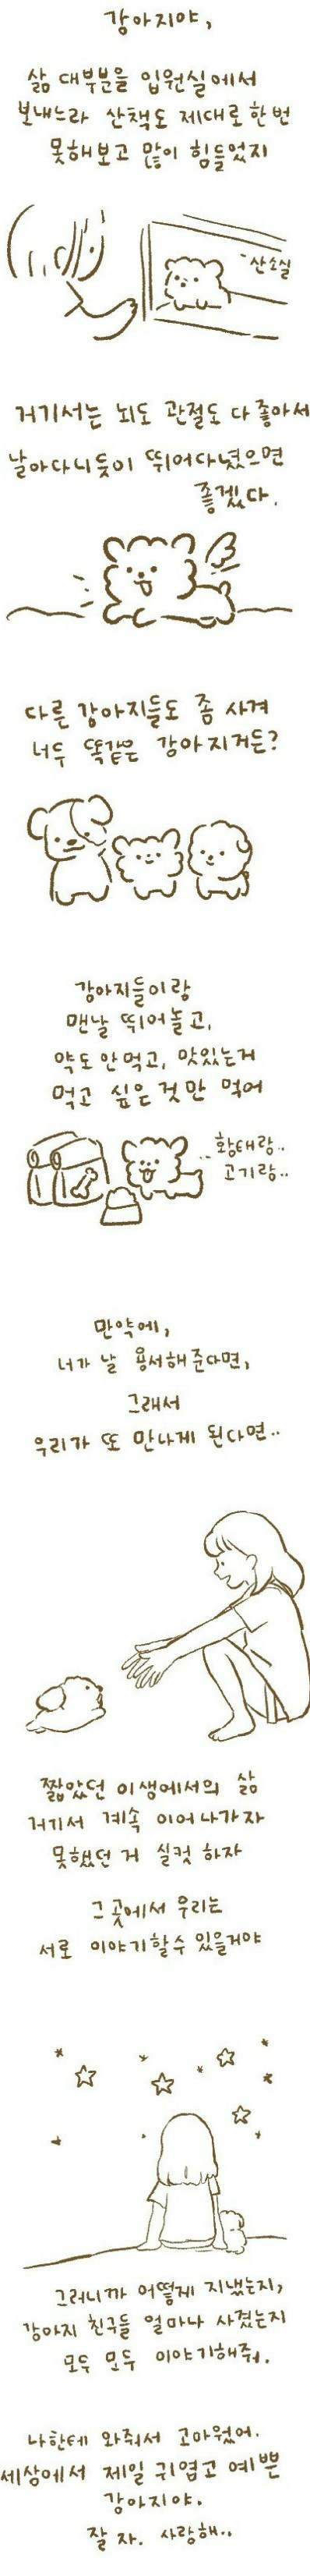 강아지야,
삶 대부분을 입원실에서
보내느라 산책도 제대로 한번
못해보고 많이 힘들었지
산소실
거기서는 뇌도 관절도 다 좋아서
날아다니듯이 뛰어다녔으면
좋겠다.
다른 강아지들도 좀 사겨
너두 똑같은 강아지거든?
강아지들이랑
맨날 뛰어놀고,
약도 안먹고, 맛있는거
먹고 싶은 것만 먹어
황태랑..
고기랑..
만약에,
너가 날 용서해준다면,
그래서
우리가 또 만나게 된다면..
짧았던 이생에서의 삶
거기서 계속 이어나가자
못했던 거 실컷 하자
그곳에서 우리는
서로 이야기할수 있을거야
그러니까 어떻게 지냈는지,
강아지 친구들 얼마나 사겼는지
모두 모두 이야기해줘.
나한테 와줘서 고마웠어.
세상에서 제일 귀엽고 예쁜
강아지야.
잘 자. 사랑해..